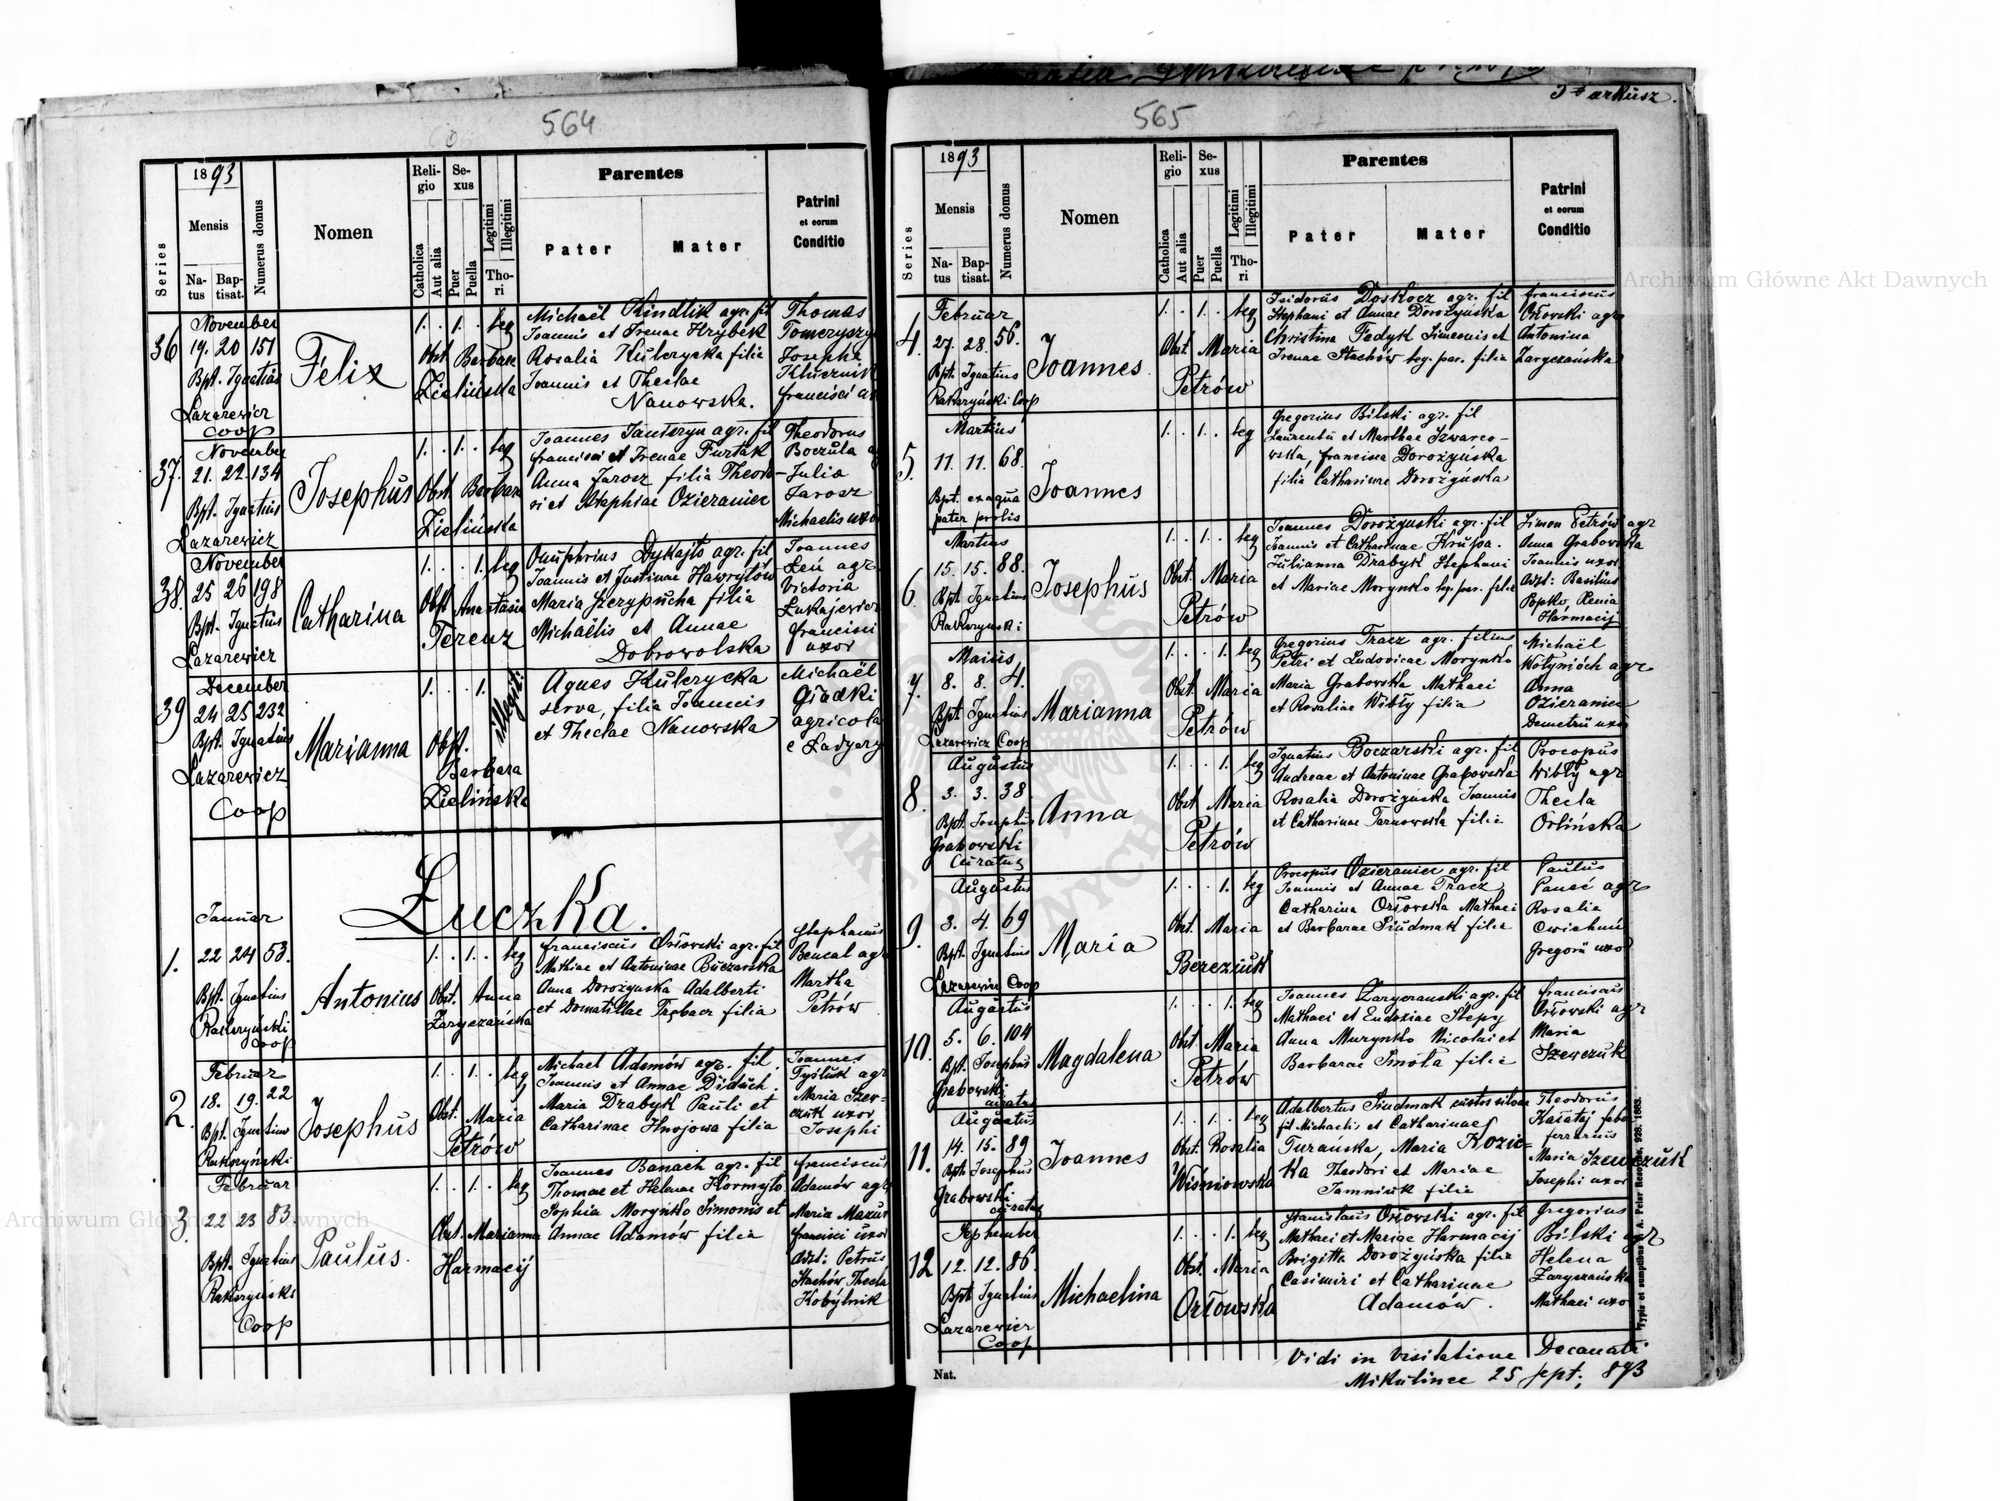 564
1893
Series
Mensis
Natus
Baptisat.
Numerus domus
Nomen
Religio
Catholica
Aut alia
Sexus
Puer
Puella
Legitimi
Illegitimi
Thori
Parentes
Pater
Mater
Patrini
et eorum
Conditio
36
November
19. 20 151
Bpt. Ignatius
Lazarewicz
coop
Felix
1. . 1. . leg
Obst Barbara
Zielińska
Michaël Kindlik agr. fil
Joannis et Irenae Hrybek
Rosalia Kulczycka filia
Joannis et Theclae
Nanowska.
Thomas
Josepha
Klucznik
Francisci
37.
November
21. 22. 134
Bpt. Ignatius
Lazarewicz
Josephus
1. . 1. . leg
Obst Barbara
Zielińska
Joannes Janteryn agr. fil
Francisci et Irenae Furtak
Anna Jarosz filia Theodo-
ri et Stephiae Ozieraniec
Theodorus
Boczula
Julia
Jarosz
Michaelis uxor
38.
November
25 26 198
Bpt. Ignatius
Lazarewicz
Catharina
1. . . 1. leg
Obst Anastasia
Terenz
Onuphrius Dykajło agr. fil
Joannis et Justinae Hawryłów
Maria Szerypucha filia
Michaëlis et Annae
Dobrowolska
Joannes
Leń agr.
Victoria
Łukajewicz
Francisci
uxor
39
December
24 25 232
Bpt. Ignatius
Lazarewicz
Coop
Marianna
1. . . 1. illegit:
Obst.
Barbara
Zielińska
Agnes Kulczycka
serva, filia Joannis
et Theclae Nanowska
Michaël
Gładki
agricola
e Ładyczy
Łuczka.
1.
Januar
22 24 53.
Bpt. Ignatius
Rakszyński
coop
Antonius
1. . 1. . leg
Obst. Anna
Zaryczańska
Franciscus Orłowski agr. fil
Mathiae et Antoninae Buczarska
Anna Dorożyńska Adalberti
et Domatillae Trębacz filia
Stephanus
Bencal agr
Martha
Petrów
2.
Februar
18. 19. 22
Bpt. Ignatius
Rakszyński
Josephus
1. . 1. . leg
Obst. Maria
Petrów
Michael Adamów agr. fil.
Joannis et Annae Diduch.
Maria Drabyk Pauli et
Catharinae Hnojowa filia
Joannes
Tysluk agr
Maria Szew-
czuk uxor
Josephi
3.
Februar
22 23 83.
Bpt. Ignatius
Rakszyński
Coop
Paulus.
1. . 1. . leg
Obst. Marianna
Harmacij
Joannes Banach agr. fil
Thomae et Helenae Kormyło
Sophia Moryńko Simonis et
Annae Adamów filia
Franciscus
Adamów agr
Maria Mazur
Francisci uxor
Adst: Petrus
Stachów Thecla
Kobylnik
3 arkusz.
565
1893
Series
Mensis
Natus
Baptisat.
Numerus domus
Nomen
Religio
Catholica
Aut alia
Sexus
Puer
Puella
Legitimi
Illegitimi
Thori
Parentes
Pater
Mater
Patrini
et eorum
Conditio
4.
Februar
27. 28. 56.
Bpt. Ignatius
Rakszyński Coop
Joannes
1. . 1. . leg
Obst Maria
Petrów
Isidorus Doskocz agr. fil
Stephani et Annae Dorożyńska
Christina Fedyk Simeonis et
Irenae Stachów leg. par. filia
Franciscus
Orłowski agr
Antonina
Zaryczańska
5.
Martius
11. 11. 68.
Bpt. ex aqua
pater prolis
Joannes
1. . 1. . leg
Gregorius Bilski agr. fil
Laurentii et Marthae Szwarco-
wska, Francisca Dorożyńska
filia Catharinae Dorożyńska
6.
Martius
15. 15. 88.
Bpt Ignatius
Rakszyński
Josephus
1. . 1. . leg
Obst. Maria
Petrów
Joannes Dorożyński agr. fil
Joannis et Catharinae Krupa.
Julianna Drabyk Stephani
et Mariae Morynko leg. par. filia
Simon Petrów agr
Anna Grabowska
Joannis uxor
Adst: Basilius
Popko, Xenia
Harmacij
7.
Maius
8. 8. 4.
Bpt Ignatius
Lazarewicz Coop
Marianna
1. . . 1. leg
Obst. Maria
Petrów
Gregorius Tracz agr. filius
Petri et Ludovicae Morynko
Maria Grabowska Mathaei
et Rosaliae Wibły filia
Michaël
Wołynióch agr
Anna
Ozieraniec
Demetrii uxor
8.
Augustus
3. 3. 38.
Bpt. Josephus
Grabowski
Curatus
Anna
1. . . 1. leg
Obst Maria
Petrów
Ignatius Boczarski agr. fil
Andreae et Antoninae Grabowska
Rosalia Dorożyńska Joannis
et Catharinae Tarnowska filia
Procopus
Wibły agr
Thecla
Orlińska
9.
Augustus
3. 4. 69
Bpt. Ignatius
Lazarewicz Coop
Maria
1. . . 1. leg
Obst Maria
Berezuik
Procopus Ozieraniec agr. fil
Joannis et Annae Tracz
Catharina Orłowska Mathaei
et Barbarae Siudmak filia
Paulus
Paneć agr
Rosalia
Cwichuń
Gregorii uxor
10.
Augustus
5. 6. 104
Bpt. Josephus
Grabowski
curatus
Magdalena
1. . . 1. leg
Obst Maria
Petrów
Joannes Zaryczański agr. fil
Mathaei et Eudoxiae Stepy
Anna Murynko Nicolai et
Barbarae Smoła filia
Franciscus
Orłowski agr
Maria
Szewczuk
11.
Augustus
14. 15. 89
Bpt. Josephus
Grabowski
curatus
Joannes
1. . 1. . leg
Obst Rosalia
Wiśniowska
Adalbertus Siudmak custos silvae
fil Michaelis et Catharinae
Turańska, Maria Kozic-
ka Theodori et Mariae
Jamniuk filia
Theodorus
Kasatej faber
ferrarius
Maria Szewczuk
Josephi uxor
12
September
12. 12. 86.
Bpt Ignatius
Lazarewicz
Coop
Michaelina
1. . . 1. leg
Obst. Maria
Orłowska
Stanislaus Orłowski agr. fil
Mathaei et Mariae Harmacij
Brigitta Dorożyńska filia
Casimiri et Catharinae
Adamów.
Gregorius
Bilski agr
Helena
Zaryczańska
Mathaei uxor
Vidi in Visitatione Decanali
Mikulince 25 sept. 893
Nat.
Typis et sumptibus A. Pelar Resoviae, 928. 1883.
Archiwum Główne Akt Dawnych
Archiwum Główne Akt Dawnych